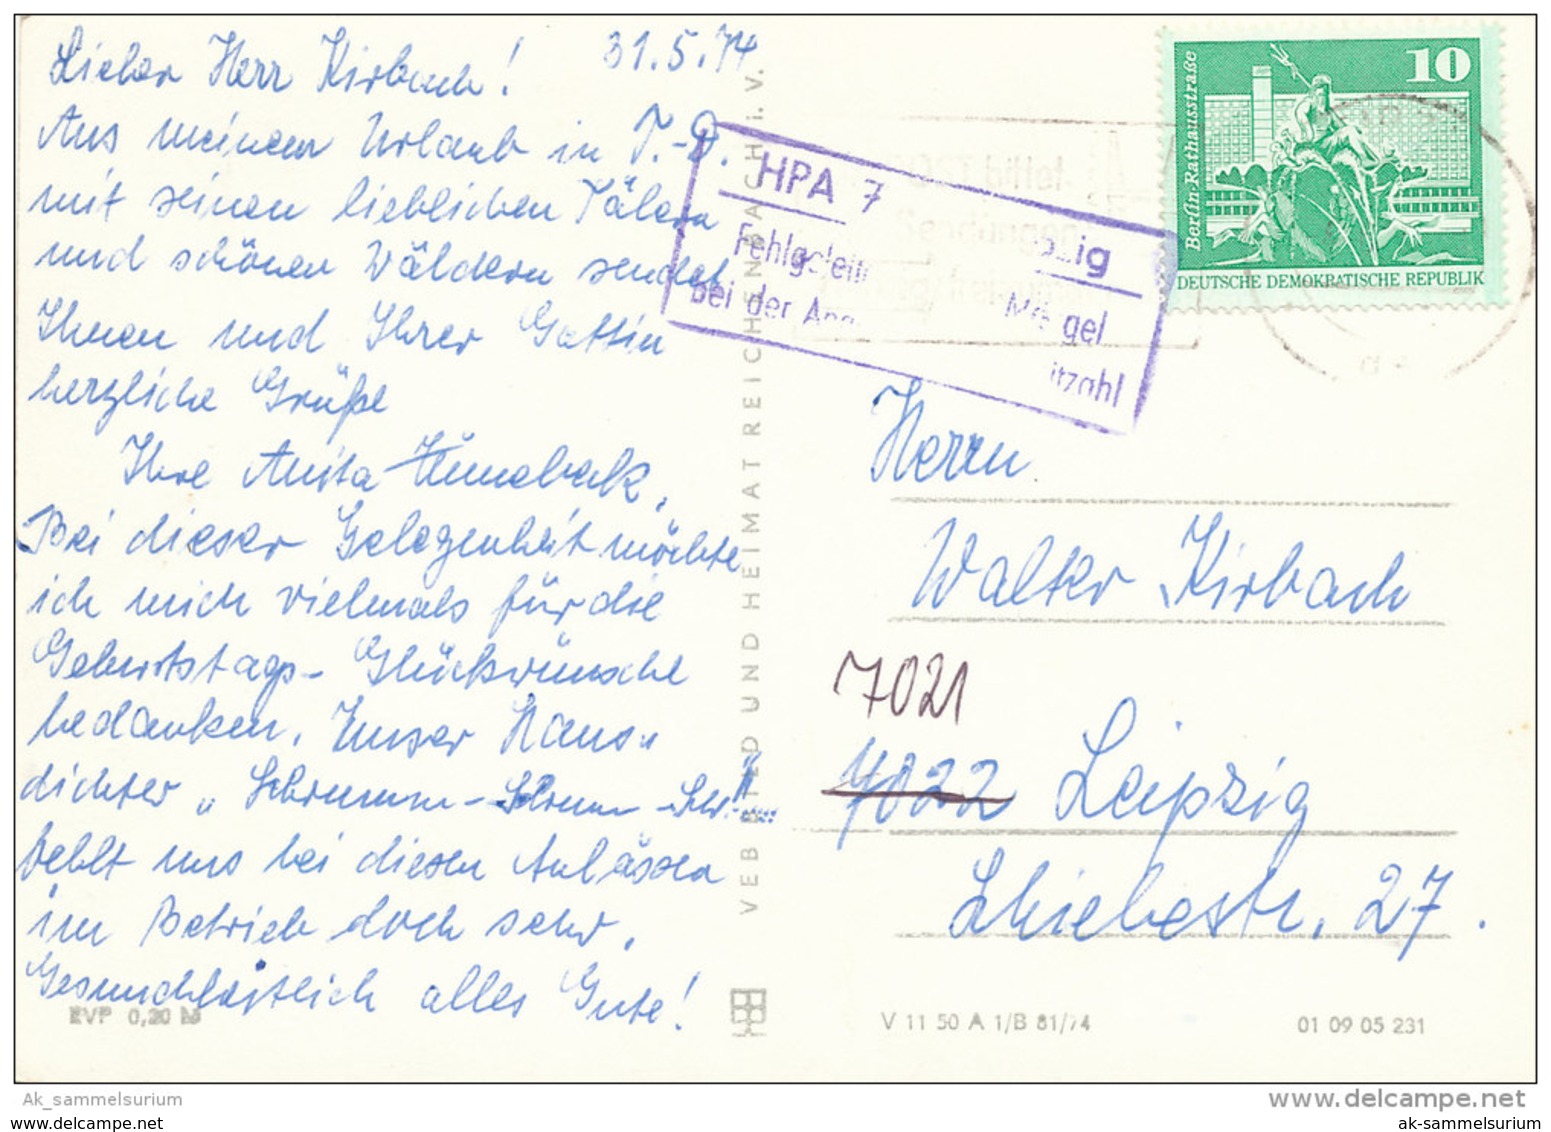 31.5.74
Lieber Herr Kirbach!
Aus meinem Urlaub in T.-D.
mit seinen lieblichen Tälern
und schönen Wäldern sendet
Ihnen und Ihrer Gattin
herzliche Grüße
Ihre Anita
Bei dieser Gelegenheit möchte
ich mich vielmals für die
Geburtstags-Glückwünsche
bedanken. Unser Haus-
dichter „Schrumm-Schrumm-Schr!!"
fehlt uns bei diesen Anlässen
im Betrieb doch sehr.
Gesundheitlich alles Gute!
EVP 0,20 M
VEB BILD UND HEIMAT REICHENBACH i. V.
HPA 7 zig
Fehlgelei
Mangel
bei der Ang
itzahl
POST bittet
Sendungen
10
Berlin-Rathausstraße
DEUTSCHE DEMOKRATISCHE REPUBLIK
Herrn
Walter Kirbach
7021
7022 Leipzig
Schiebestr. 27.
V 11 50 A 1/B 81/74
01 09 05 231
Ak_sammelsurium
www.delcampe.net
www.delcampe.net
ak-sammelsurium